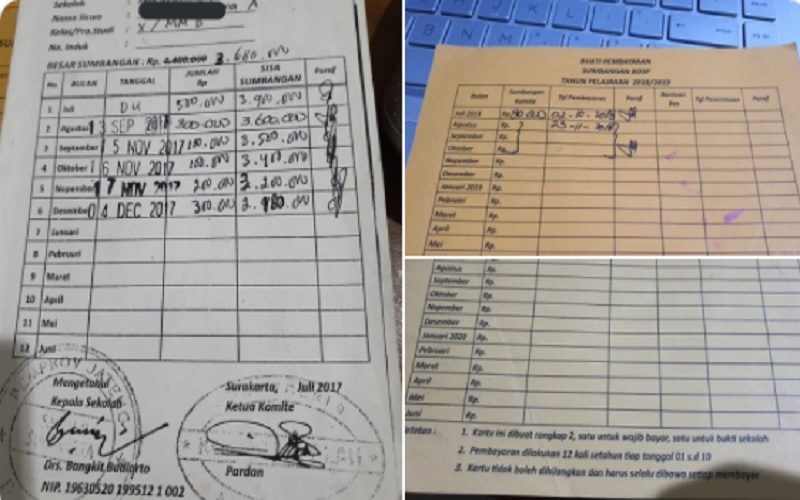 Sekolah :
Nama Siswa :
Kelas/Pro.Studi : X / MM B
No. Induk :
BESAR SUMBANGAN : Rp. 4.400.000 3.680.000
No BULAN TANGGAL JUMLAH Rp SISA SUMBANGAN Paraf
1 Juli DU 500.000 3.900.000
2 Agustus 13 SEP 2017 300.000 3.600.000
3 September 15 NOV 2017 100.000 3.500.000
4 Oktober 16 NOV 2017 100.000 3.400.000
5 Nopember 17 NOV 2017 200.000
6 Desember 04 DEC 2017 300.000
7 Januari
8 Pebruari
9 Maret
10 April
11 Mei
12 Juni
Mengetahui
Kepala Sekolah
Drs. Bangkit Budiarto
NIP. 19630520 199512 1 002
Surakarta, Juli 2017
Ketua Komite
Pardan
BUKTI PEMBAYARAN
SUMBANGAN BOSP
TAHUN PELAJARAN 2018/2019
Bulan Sumbangan Komite Tgl Pembayaran Paraf Bantuan Bos Tgl Penerimaan Paraf
Juli 2018 Rp 02-10-2018
Agustus Rp. 23-11-2018
September Rp.
Oktober Rp.
Nopember Rp.
Desember Rp.
Januari 2019 Rp.
Pebruari Rp.
Maret Rp.
April Rp.
Mei Rp.
Agustus Rp.
September Rp.
Oktober Rp.
Nopember Rp.
Desember Rp.
Januari 2020 Rp.
Pebruari Rp.
Maret Rp.
April Rp.
Mei Rp.
Juni Rp.
Catatan :
1. Kartu ini dibuat rangkap 2, satu untuk wajib bayar, satu untuk bukti sekolah
2. Pembayaran dilakukan 12 kali setahun tiap tanggal 01 s.d 10
3. Kartu tidak boleh dihilangkan dan harus selalu dibawa setiap membayar